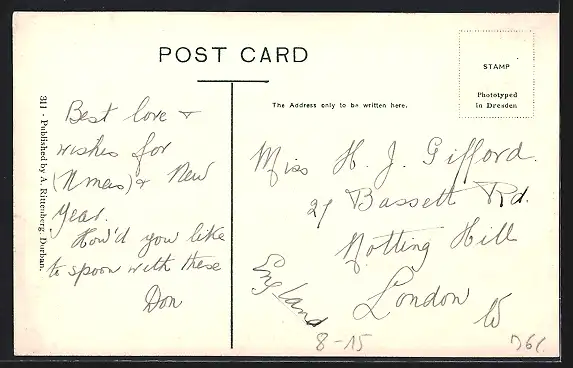 POST CARD
STAMP
Phototyped
in Dresden
The Address only to be written here.
311 - Published by A. Rittenberg, Durban.
Best love +
wishes for
(Xmas) & New
Year.
How'd you like
to spoon with these
Don
Miss H. J. Gifford.
27 Bassett Rd.
Notting Hill
London W
England
8-15